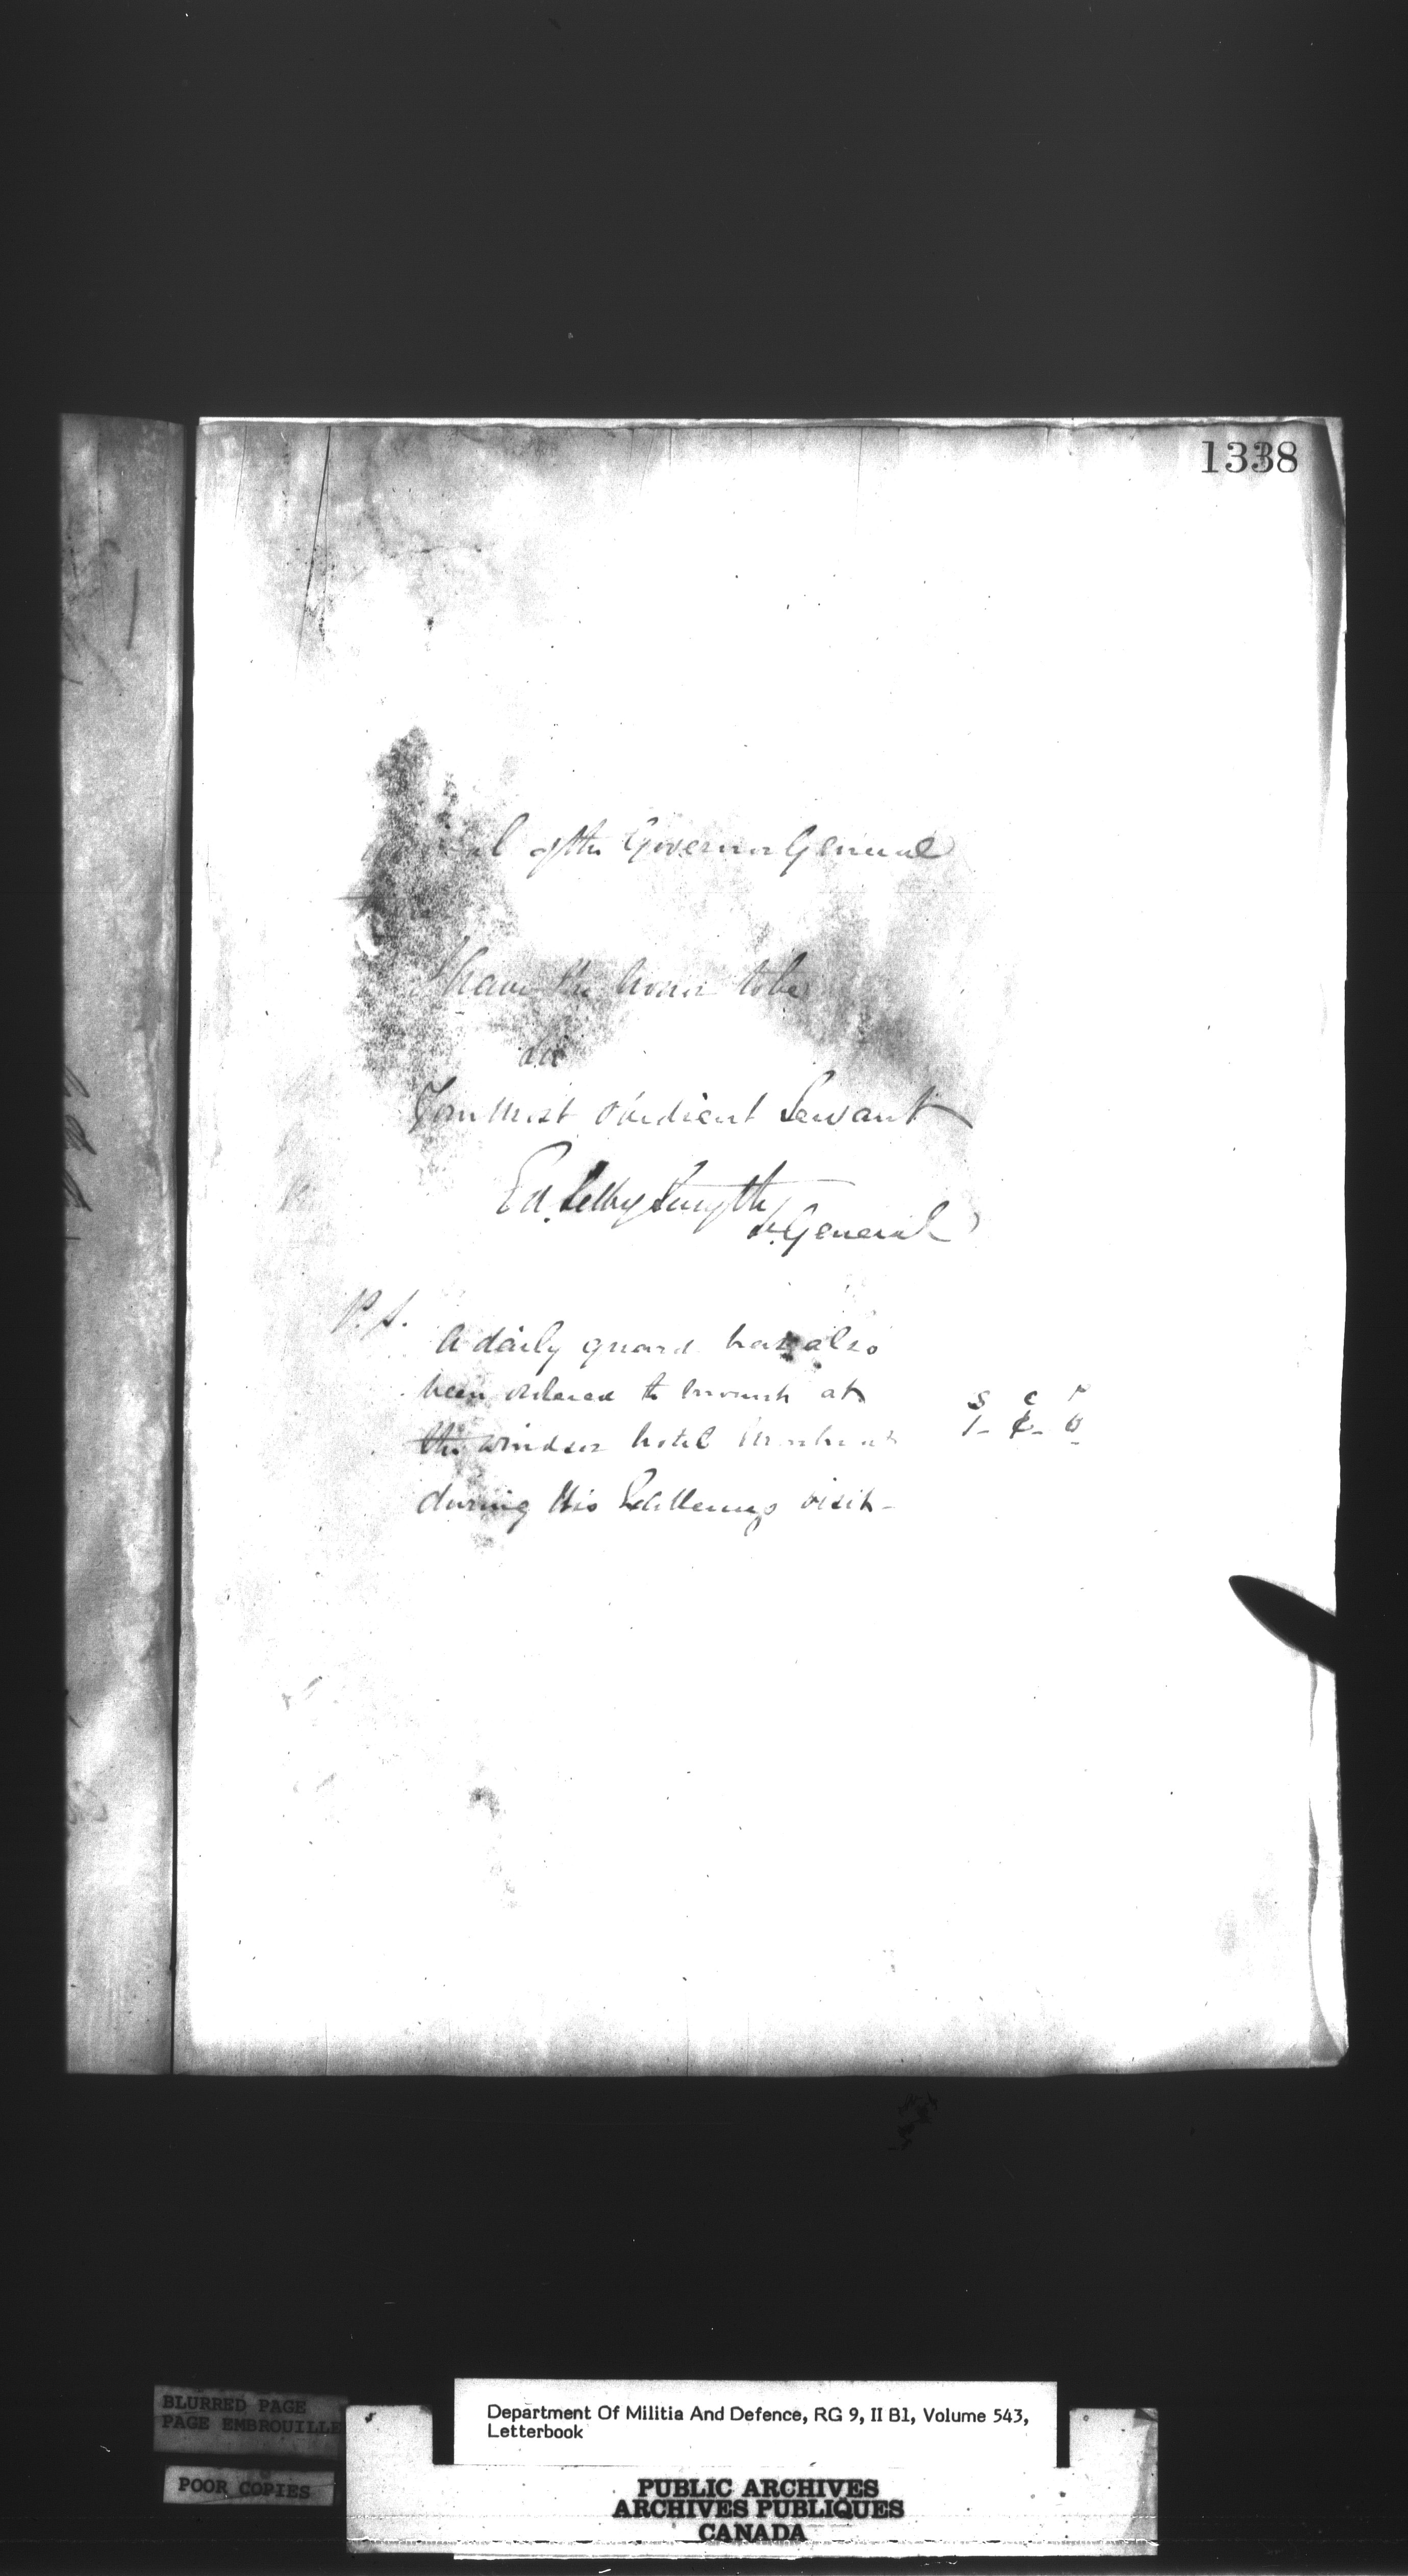 1338
of the Governor General
I have the honor to be
Sir
Your most obedient Servant
Ed. Selby Smyth
Lt. General
P.S.
A daily guard has also
been ordered to mount at
the Windsor hotel Montreal
during His Excellency's visit -
S C P
1-
BLURRED PAGE
PAGE EMBROUILLE
POOR COPIES
Department Of Militia And Defence, RG 9, II B1, Volume 543,
Letterbook
PUBLIC ARCHIVES
ARCHIVES PUBLIQUES
CANADA